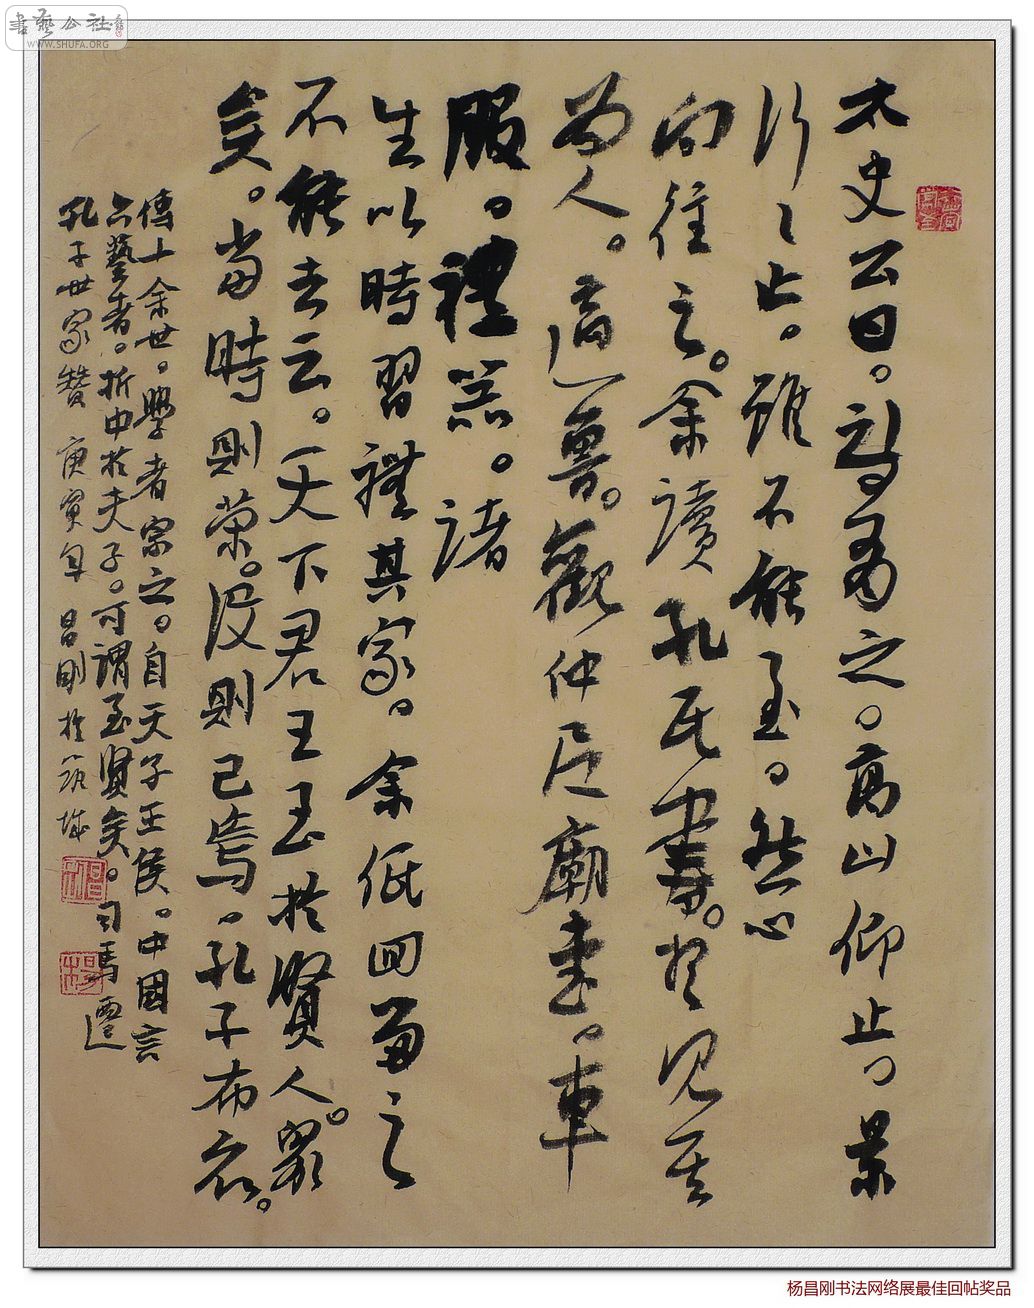 書藝公社
WWW.SHUFA.ORG
太史公曰。詩有之。高山仰止、景
行〻止。雖不能至。然心
向往之。余讀孔氏書。想見其
為人。適魯。觀仲尼廟堂。車
服。禮器。諸
生以時習禮其家。余低回留之
不能去云。天下君王至於賢人。眾
矣。當時則榮。沒則已焉。孔子布衣。
傳十余世。學者宗之。自天子王侯。中國言
六藝者。折中於夫子。可謂至賢矣。司馬遷
孔子世家贊 庚寅年 昌剛於筑城
杨昌刚书法网络展最佳回帖奖品